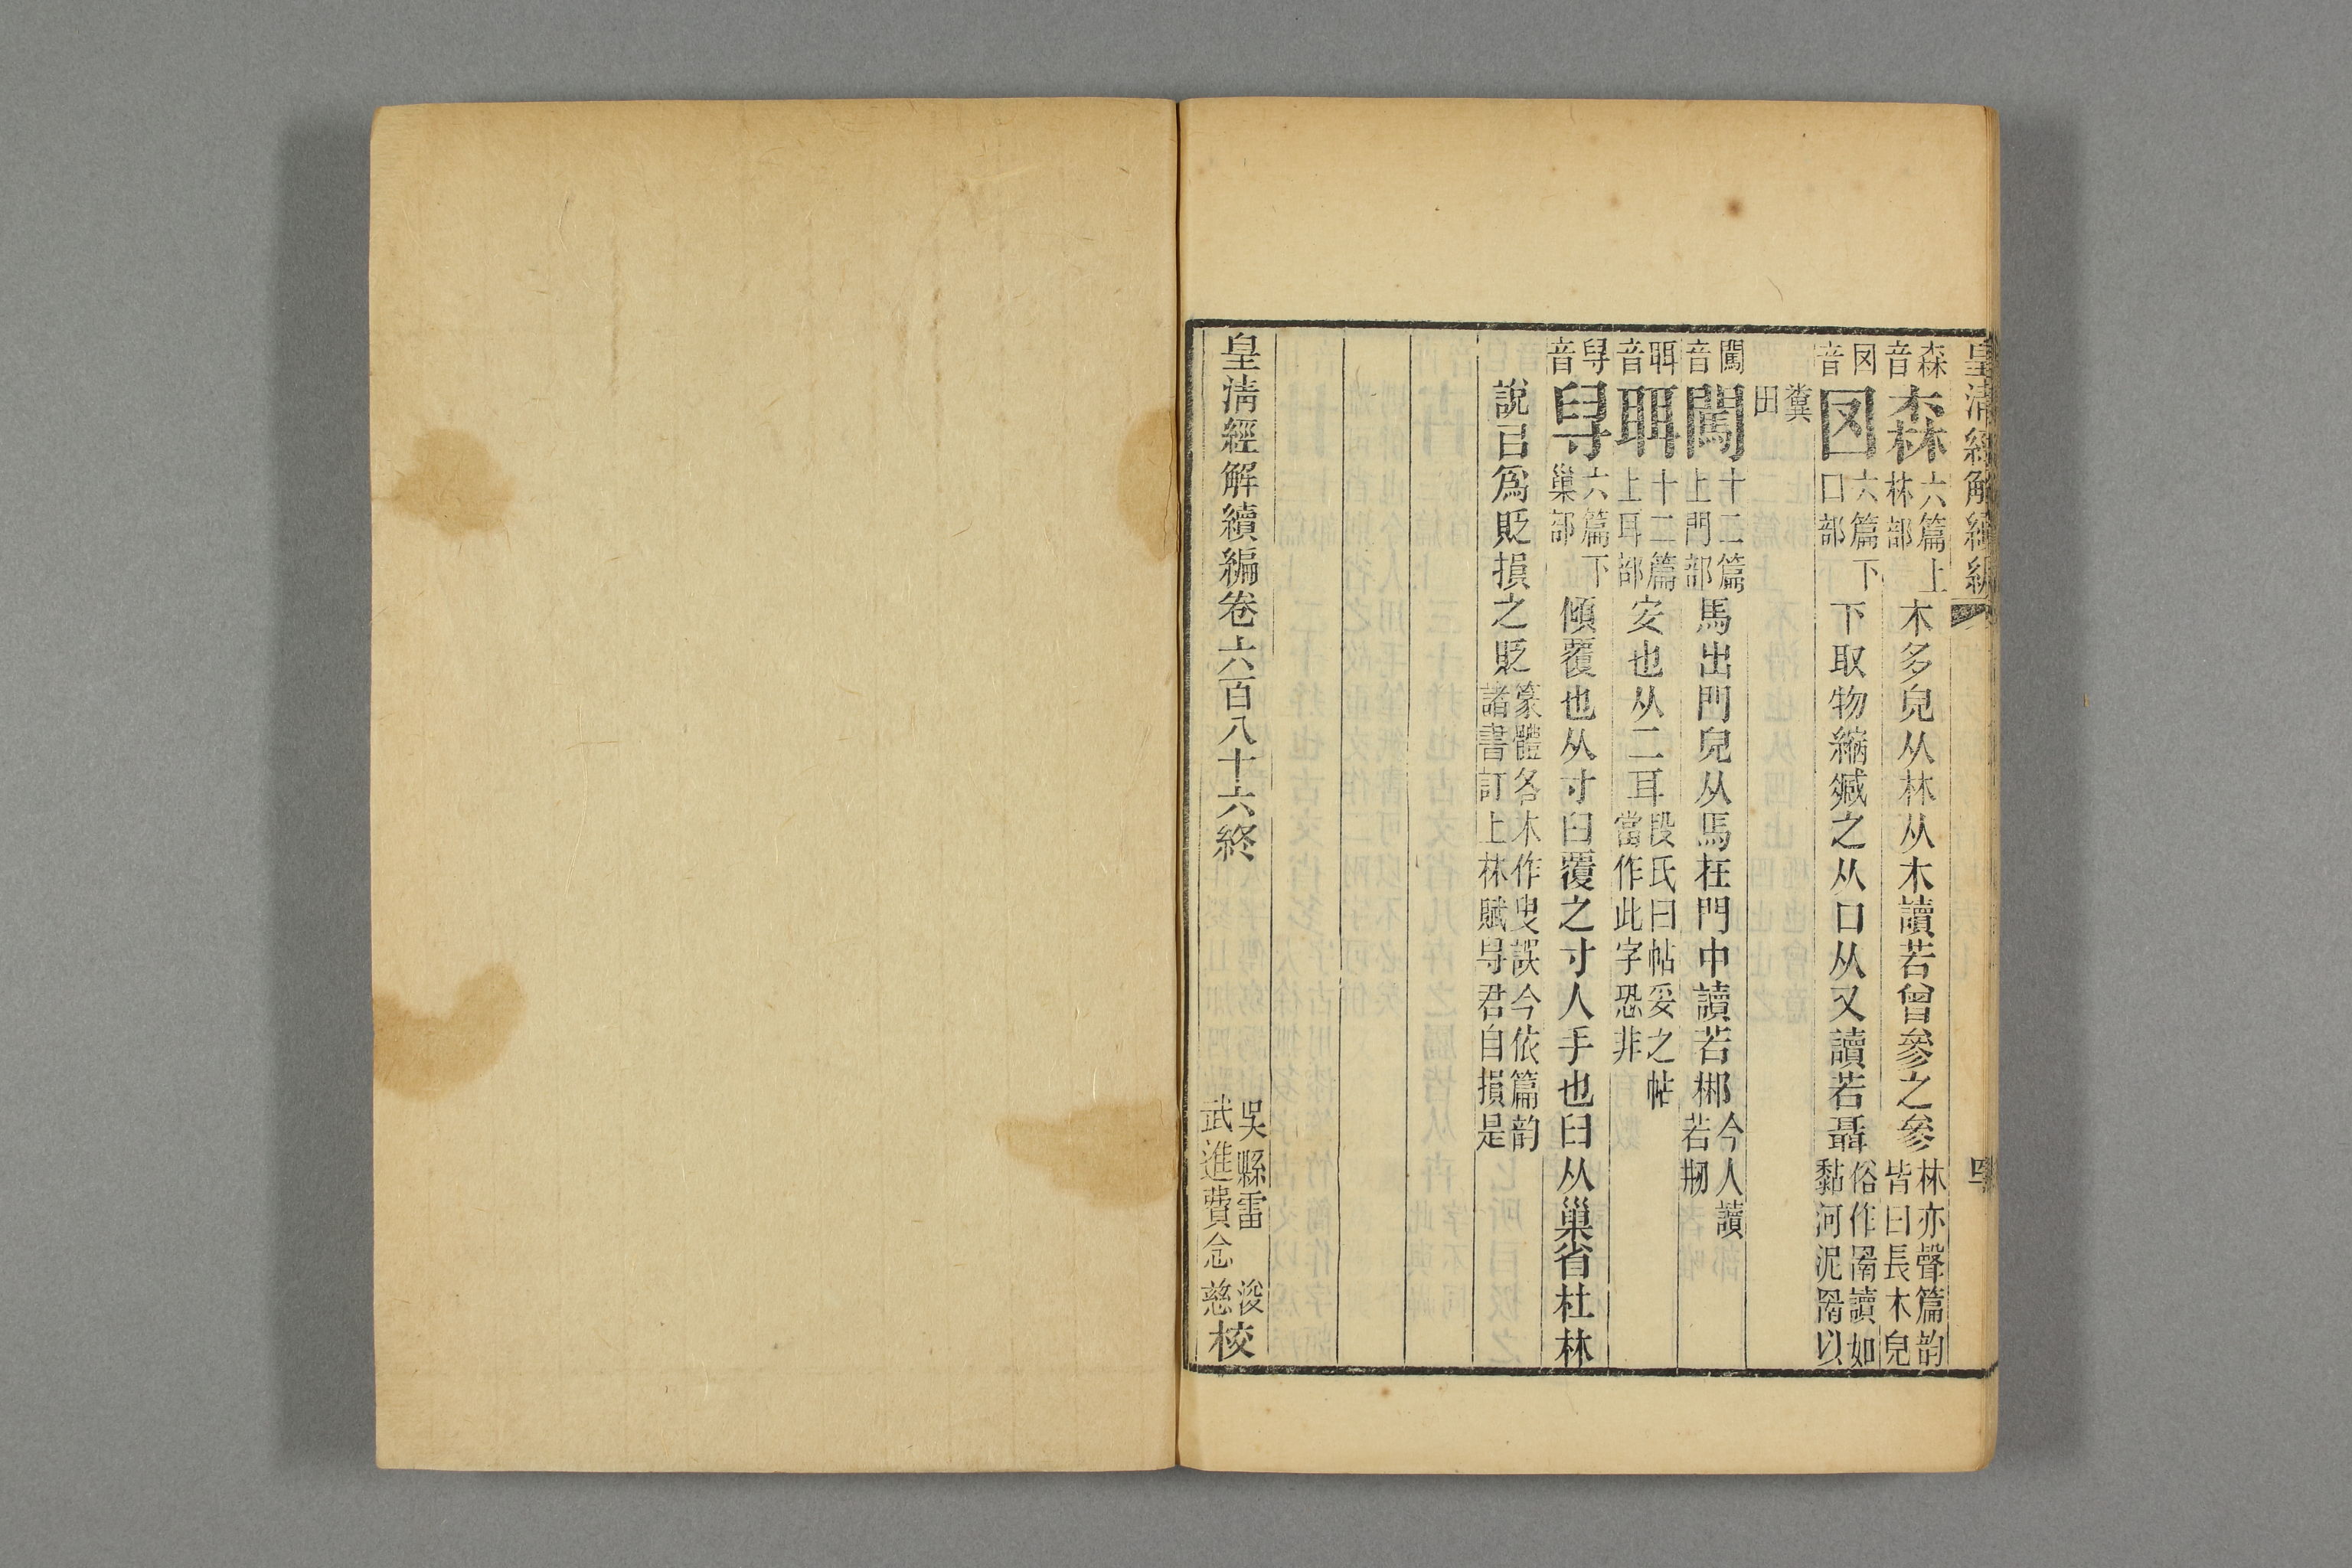 皇清經解續編 四
森音 森 六篇上林部 木多皃从林从木讀若曾參之參 林亦聲篇韵皆曰長木皃
囡音 囡 六篇下囗部 下取物縮臧之从囗从又讀若聶 俗作罱讀如黏河泥罱以
糞田
闖音 闖 十二篇上門部 馬出門皃从馬在門中讀若郴 今人讀若搠
聑音 聑 十二篇上耳部 安也从二耳 段氏曰帖妥之帖當作此字恐非
𠭥音 𠭥 六篇下巢部 傾覆也从寸臼覆之寸人手也臼从巢省杜林
說㠯爲貶損之貶 篆體各本作叟誤今依篇韵諸書訂上林賦𠭥君自損是
皇清經解續編卷六百八十六終 吳縣雷浚武進費念慈校